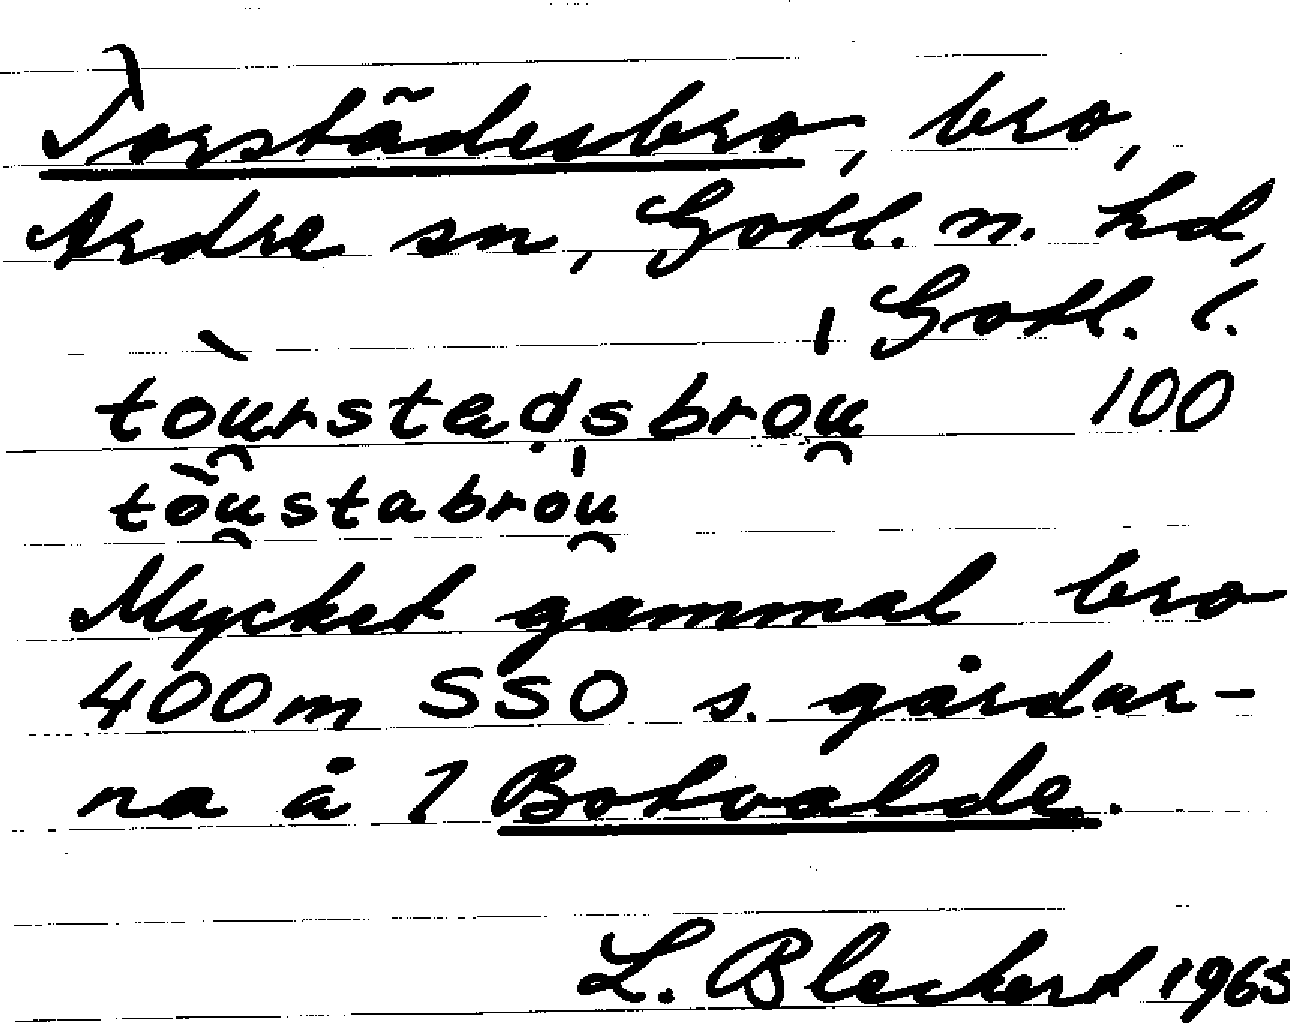 Torstädesbro, bro,
Ardre sn, Gotl. n. hd,
Gotl. l.
tòu̯rstedsbróu̯ 100
tòu̯stabróu̯
Mycket gammal bro
400m SSO s. gårdar-
na å 1 Botvalde.
L. Bleckerd 1965